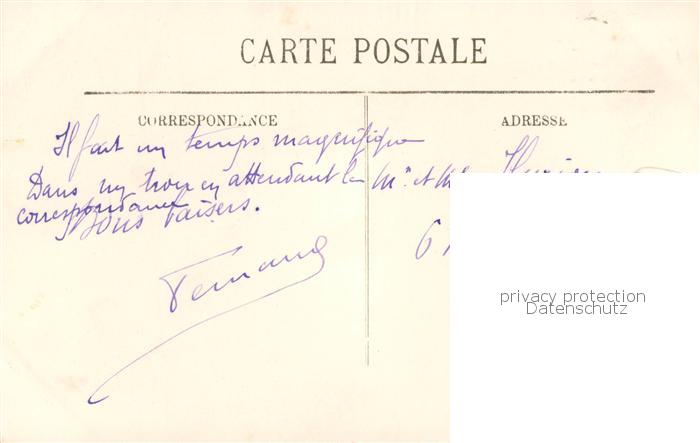 CARTE POSTALE
CORRESPONDANCE
ADRESSE
Il fait un temps magnifique
Dans un trou en attendant la
correspondance
Bons baisers.
Fernand
Mr. et Me
6
privacy protection
Datenschutz